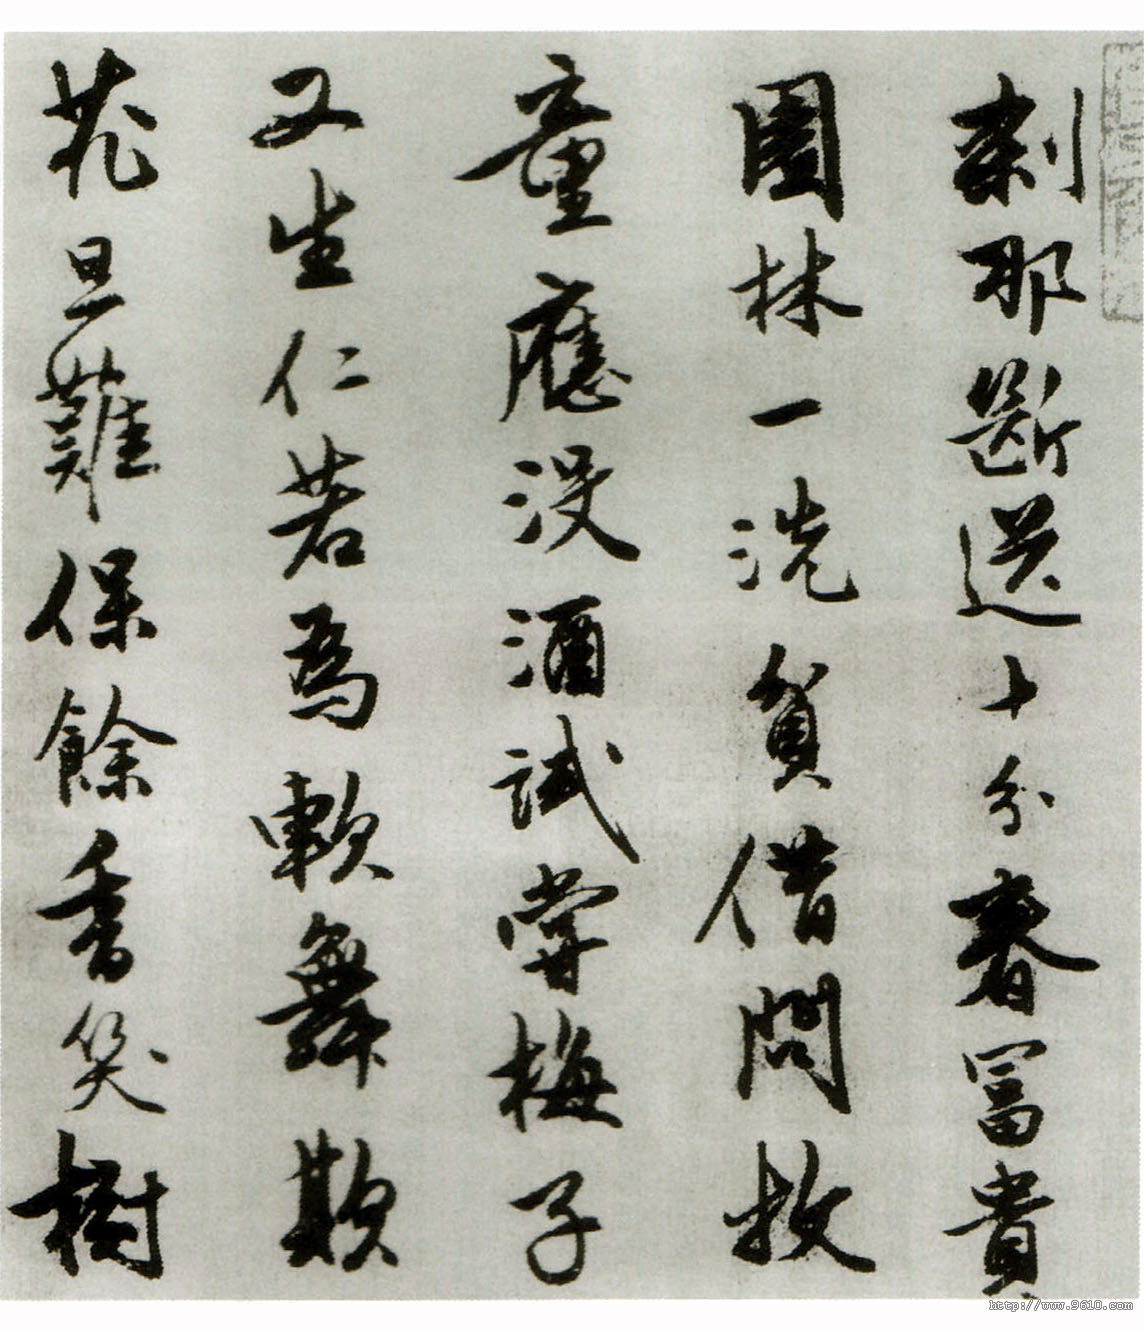 刹那斷送十分春冨貴
園林一洗貧借問牧
童應没酒試嘗梅子
又生仁若為軟舞欺
花旦難保餘香笑樹
http://www.9610.com